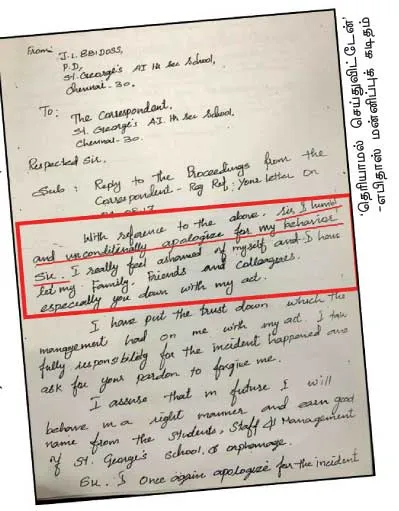 From:
J.L. EBIDOSS,
P.D,
St. George's AI Hr sec School,
Chennai-30.
To:
The Correspondent,
St. George's AI. Hr sec School,
Chennai-30
Respected Sir.
Sub : Reply to the Proceedings from the
Correspondent - Reg Ref: Your letter on
With reference to the above. Sir I humbl
and unconditionally apologize for my behavior
Sir. I really feel ashamed of myself and I have
let my. Family. Friends and Colleagues.
especially you down with my act.
I have put the trust down which the
management had on me with my act. I take
fully responsibility for the incident happened and
ask for your pardon to forgive me.
I assure that in future I will
behave in a right manner and earn good
name from the Students, Staff & Management
of St. George's School & orphanage.
Sir. I Once again apologize for the incident
'தெரியாமல் செய்துவிட்டேன்'
-எபிதாஸ் மன்னிப்புக் கடிதம்